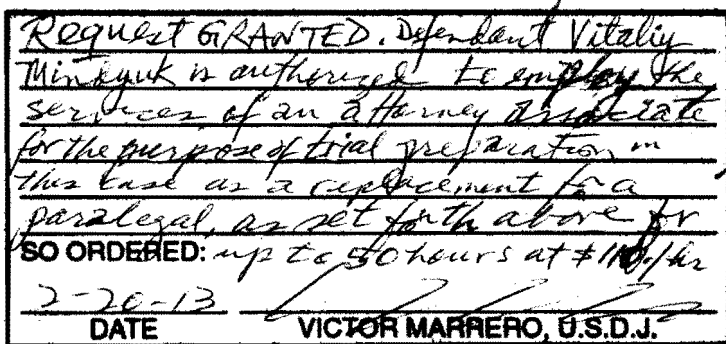 Request GRANTED. Defendant Vitaliy
Mindyuk is authorized to employ the
services of an attorney associate
for the purpose of trial preparation in
this case as a replacement for a
paralegal, as set forth above for
SO ORDERED: up to 50 hours at $110./hr
2-20-13
DATE VICTOR MARRERO, U.S.D.J.